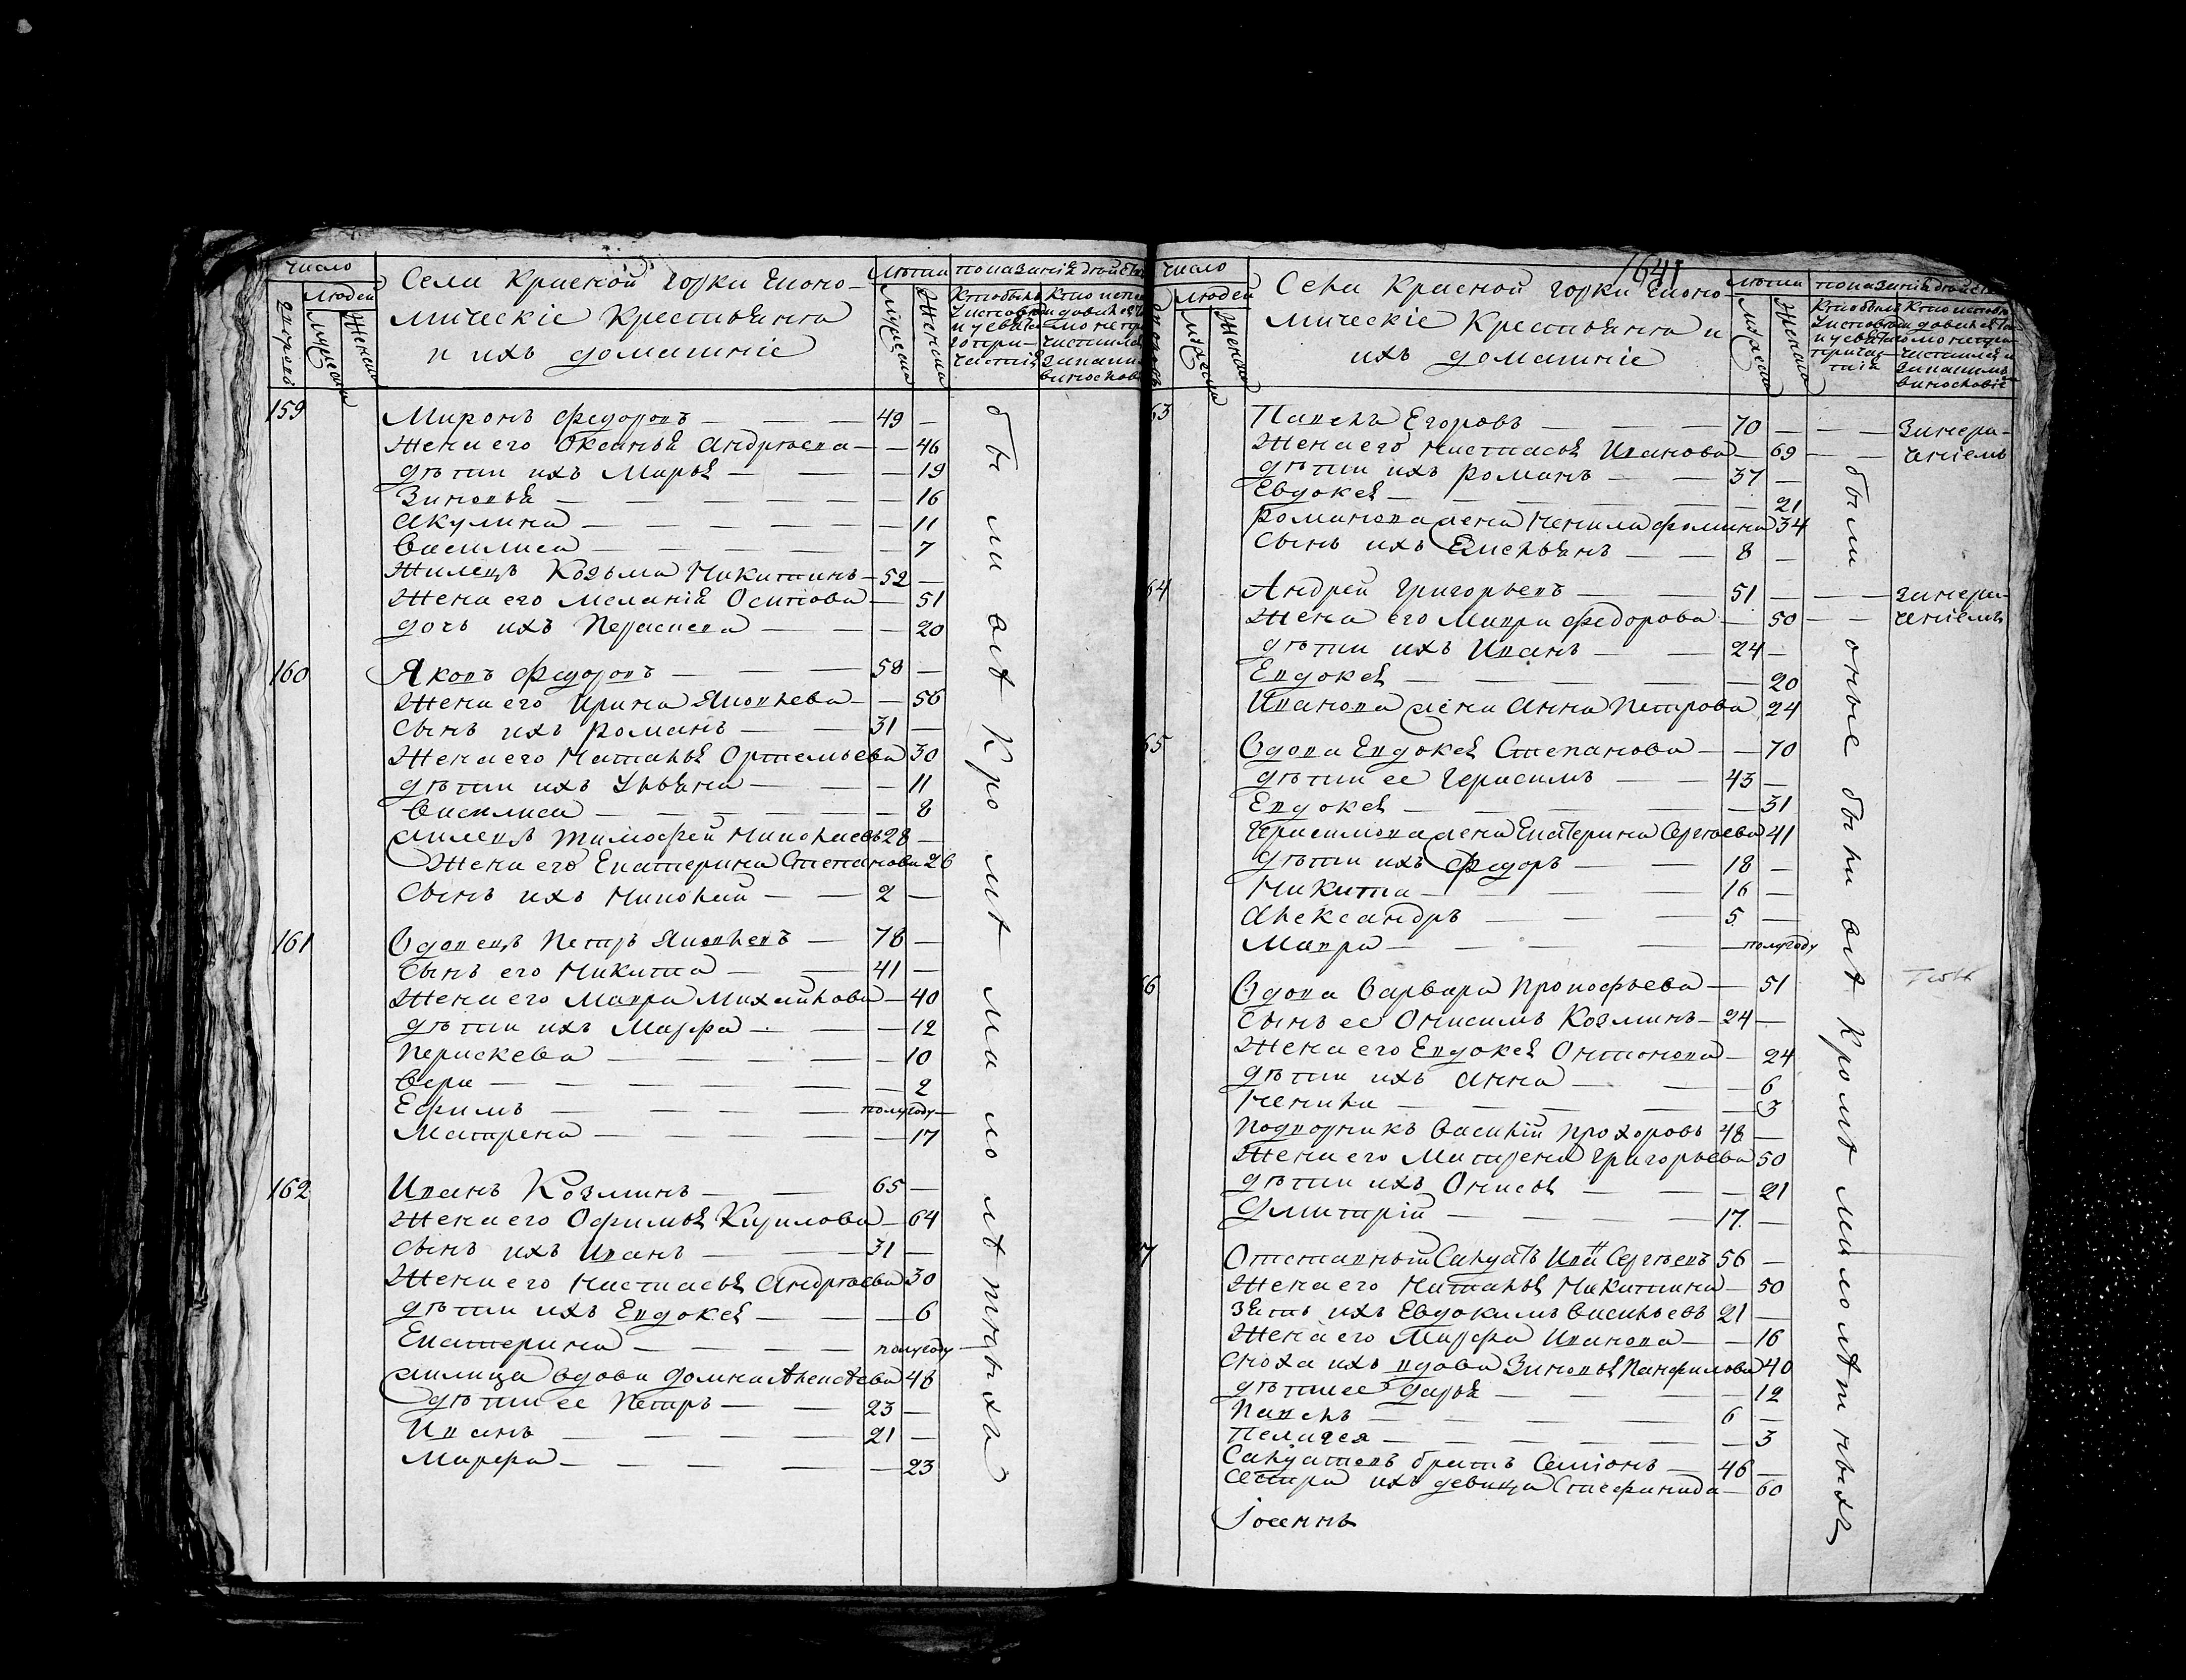 число
Села Красной горки Еконо-
мическіе Крестьяна
и ихъ домашніе
лѣта
показаніе дѣйства
дворовъ
людей
мужеска
женска
мужеска
женска
Кто былъ
159
Миронъ Федоровъ — — — 49 —
Жена его Оксинья Андрѣева — — 46
дѣти ихъ Марья — — — — 19
Зиновья — — — — — 16
Акулина — — — — — 11
Василиса — — — — — 7
Жилецъ Козьма Никитинъ — 52 —
Жена его Меланія Осипова — 51
дочь ихъ Пераскева — — — 20
160
Яковъ Федоровъ — — — 58 —
Жена его Ирина Яковлева — — 56
Сынъ ихъ Романъ — — 31 —
Жена его Наталья Ортемьева 30
дѣти ихъ Ульяна — — — 11
Василиса — — — — — 8
жилецъ Тимофей Николаевъ 28 —
Жена его Екатерина Степанова 26
Сынъ ихъ Николай — — 2 —
161
Вдовецъ Петръ Яковлевъ — 78 —
Сынъ его Никита — — 41 —
Жена его Мавра Михайлова — 40
дѣти ихъ Марфа — — — 12
Пераскева — — — — 10
Вера — — — — — — 2
Ефимъ — — — — полугоду —
Матрена — — — — — 17
162
Иванъ Козминъ — — 65 —
Жена его Офимья Кирилова — 64
Сынъ ихъ Иванъ — — 31 —
Жена его Настасья Андрѣева 30
дѣти ихъ Евдокея — — — 6
Екатерина — — — — полугоду
жилица вдова Домна Алексѣева 48
дѣти ее Петръ — — 23 —
Иванъ — — — — 21 —
Марфа — — — — — 23
были всѣ кромѣ малолѣтныхъ
число
1641
Села Красной горки Еконо-
мическіе Крестьяна и
ихъ домашніе
лѣта
показаніе
людей
мужеска
женска
мужеска
женска
63
Павелъ Егоровъ — — — 70 — — — занера-
Жена его Настасья Иванова — 69 — — ченіемъ
дѣти ихъ Романъ — — 37 —
Евдокея — — — — — 21
Романова жена Ненила Фомина 34
Сынъ ихъ Емельянъ — — 8 —
64
Андрей Григорьевъ — — 51 — — — занера-
Жена его Мавра Федорова — 50 — — ченіемъ
дѣти ихъ Иванъ — — 24 —
Евдокея — — — — — 20
Иванова жена Анна Петрова 24
65
Вдова Евдокея Степанова — — 70
дѣти ее Герасимъ — — 43 —
Евдокея — — — — 31
Герасимова жена Екатерина Сергѣева 41
дѣти ихъ Федоръ — — 18 —
Никита — — — 16 —
Александръ — — — 5 —
Мавра — — — — — полугоду
66
Вдова Варвара Прокофьева — 51
Сынъ ее Онисимъ Козминъ — 24 —
Жена его Евдокея Онтонова — 24
дѣти ихъ Анна — — — 6
Ненила — — — — — 3
Подворникъ Василій Прохоровъ 48 —
Жена его Матрена Григорьева 50
дѣти ихъ Онисья — — — 21
Дмитрій — — — — 17 —
67
Отставный Салдатъ Иванъ Сергѣевъ 56 —
Жена его Наталья Никитина — 50
Зять ихъ Евдокимъ Васильевъ 21 —
Жена его Марфа Иванова — — 16
Сноха ихъ вдова Зиновья Панфилова 40
дѣти ее Дарья — — — — 12
Павелъ — — — — 6 —
Пелагея — — — — — 3
Салдатовъ братъ Семіонъ — 46 —
сестра ихъ девица Стефанида — 60
Іоаннъ
были оные были всѣ кромѣ малолѣтныхъ